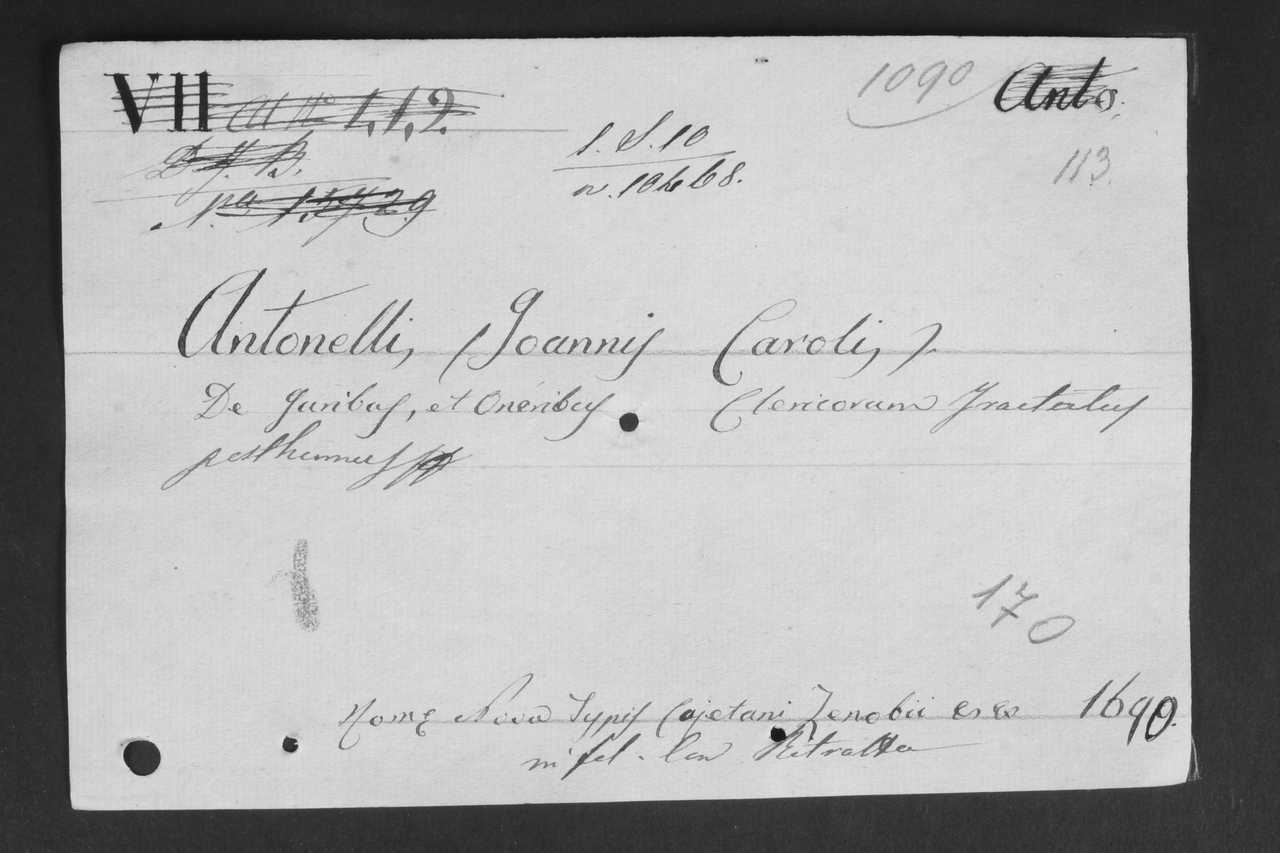 VII 1,1,2. 1090 Anto.
D. y. B. 1. S. 10 113.
N.º 1,5729 n. 10668.
Antonelli, (Joannis Caroli,).
De Juribus, et Oneribus Clericorum Tractatus
posthumus
170
Romę Nova Typis Cajetani Zenobii 1690.
in fol. Con Ritratto